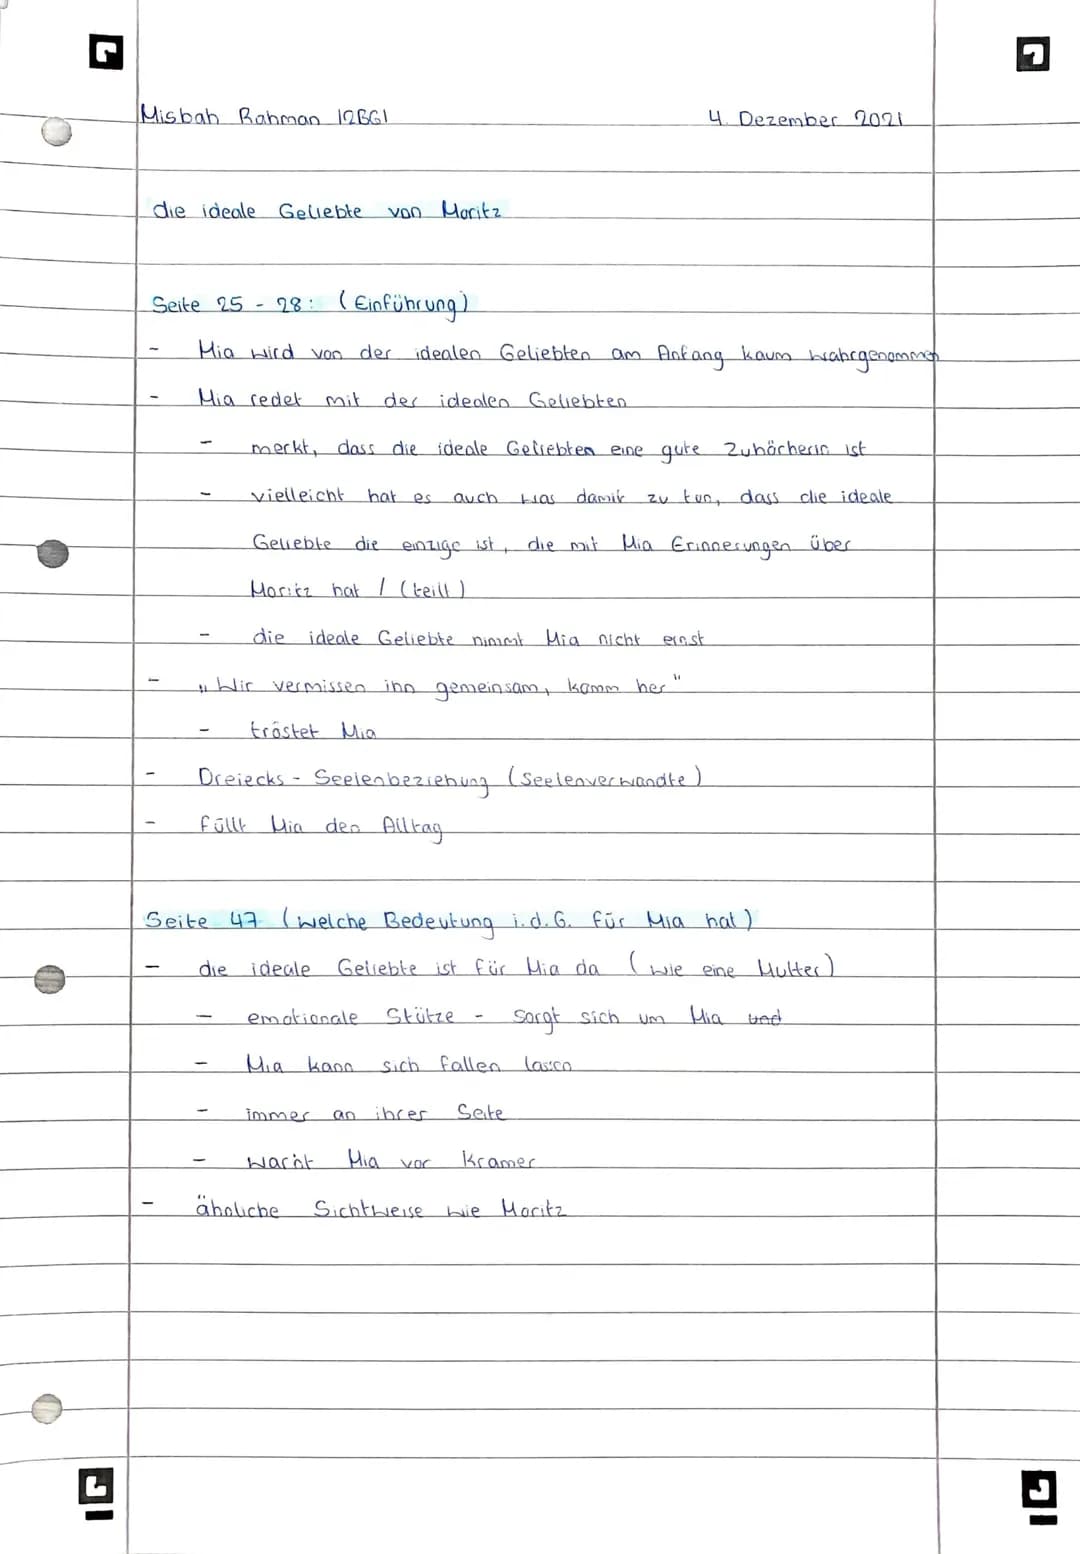 Misbah Rahman 12BG1 4. Dezember 2021
die ideale Geliebte von Moritz
Seite 25 - 28: (Einführung)
- Mia wird von der idealen Geliebten am Anfang kaum wahrgenommen
- Mia redet mit der idealen Geliebten
- merkt, dass die ideale Geliebten eine gute Zuhörherin ist
- vielleicht hat es auch was damit zu tun, dass die ideale
Geliebte die einzige ist, die mit Mia Erinnerungen über
Moritz hat / (teilt)
- die ideale Geliebte nimmt Mia nicht ernst
- „Wir vermissen ihn gemeinsam, komm her"
- tröstet Mia
- Dreiecks - Seelenbeziehung (Seelenverwandte)
- füllt Mia den Alltag
Seite 47 (welche Bedeutung i.d.G. für Mia hat)
- die ideale Geliebte ist für Mia da (wie eine Mutter)
- emotionale Stütze - sorgt sich um Mia und
- Mia kann sich fallen lassen
- immer an ihrer Seite
- warnt Mia vor Kramer
- ähnliche Sichtweise wie Moritz